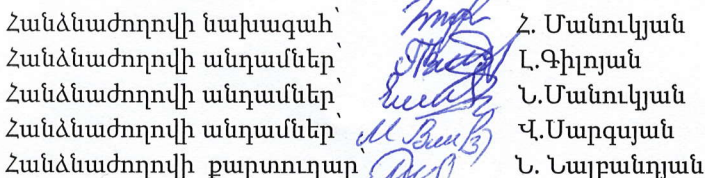 Հանձնաժողովի նախագահ՝ Հ. Մանուկյան
Հանձնաժողովի անդամներ՝ Լ.Գիլոյան
Հանձնաժողովի անդամներ՝ Ն.Մանուկյան
Հանձնաժողովի անդամներ՝ Վ.Սարգսյան
Հանձնաժողովի քարտուղար՝ Ն. Նալբանդյան